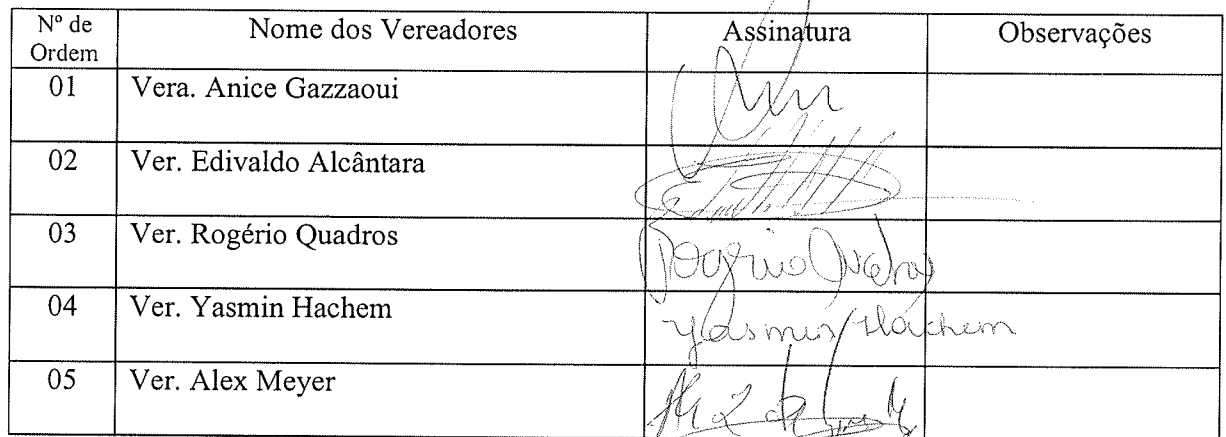 Nº de Ordem Nome dos Vereadores Assinatura Observações
01 Vera. Anice Gazzaoui
02 Ver. Edivaldo Alcântara
03 Ver. Rogério Quadros Rogério Quadros
04 Ver. Yasmin Hachem Yasmin Hachem
05 Ver. Alex Meyer